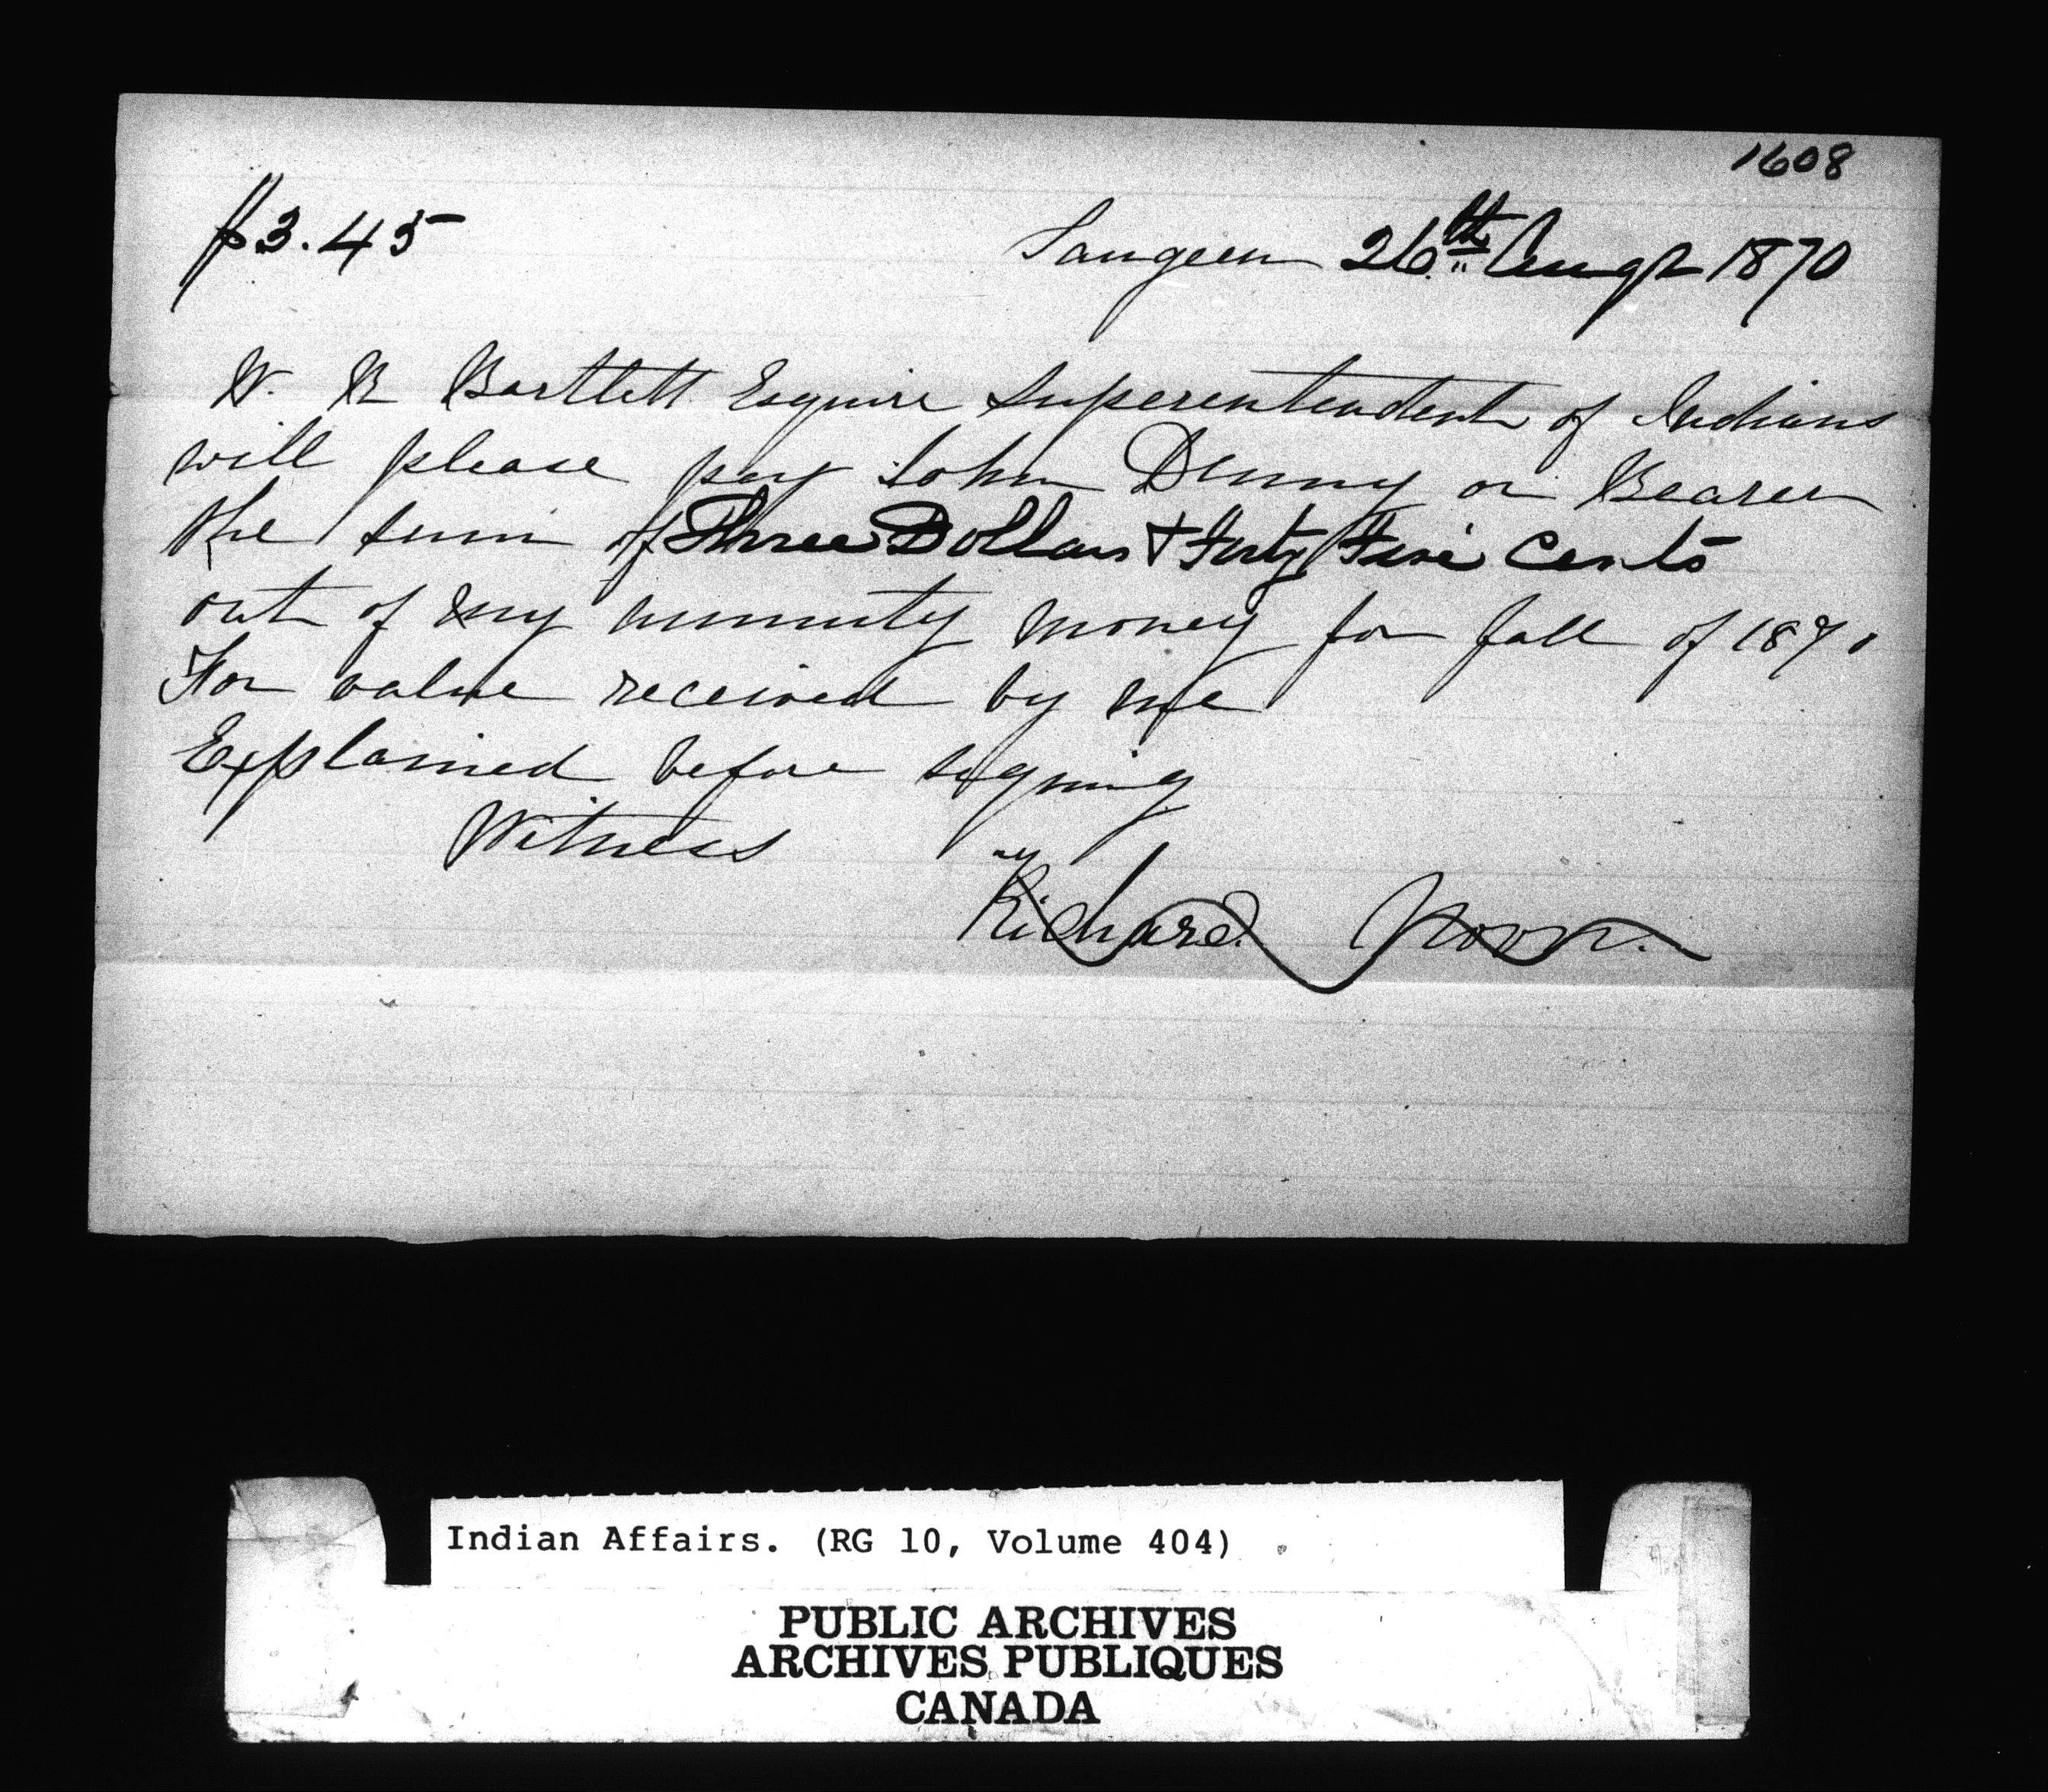 1608
$3.45
Saugeen 26th Augt 1870
W. R Bartlett Esquire Superentendent of Indians
will please pay John Denny or Bearer
the sum of Three Dollars & Forty Five Cents
out of my annuity money for fall of 1870
For value received by me
Explained before signing
Witness
Richard
Indian Affairs. (RG 10, Volume 404)
PUBLIC ARCHIVES
ARCHIVES PUBLIQUES
CANADA